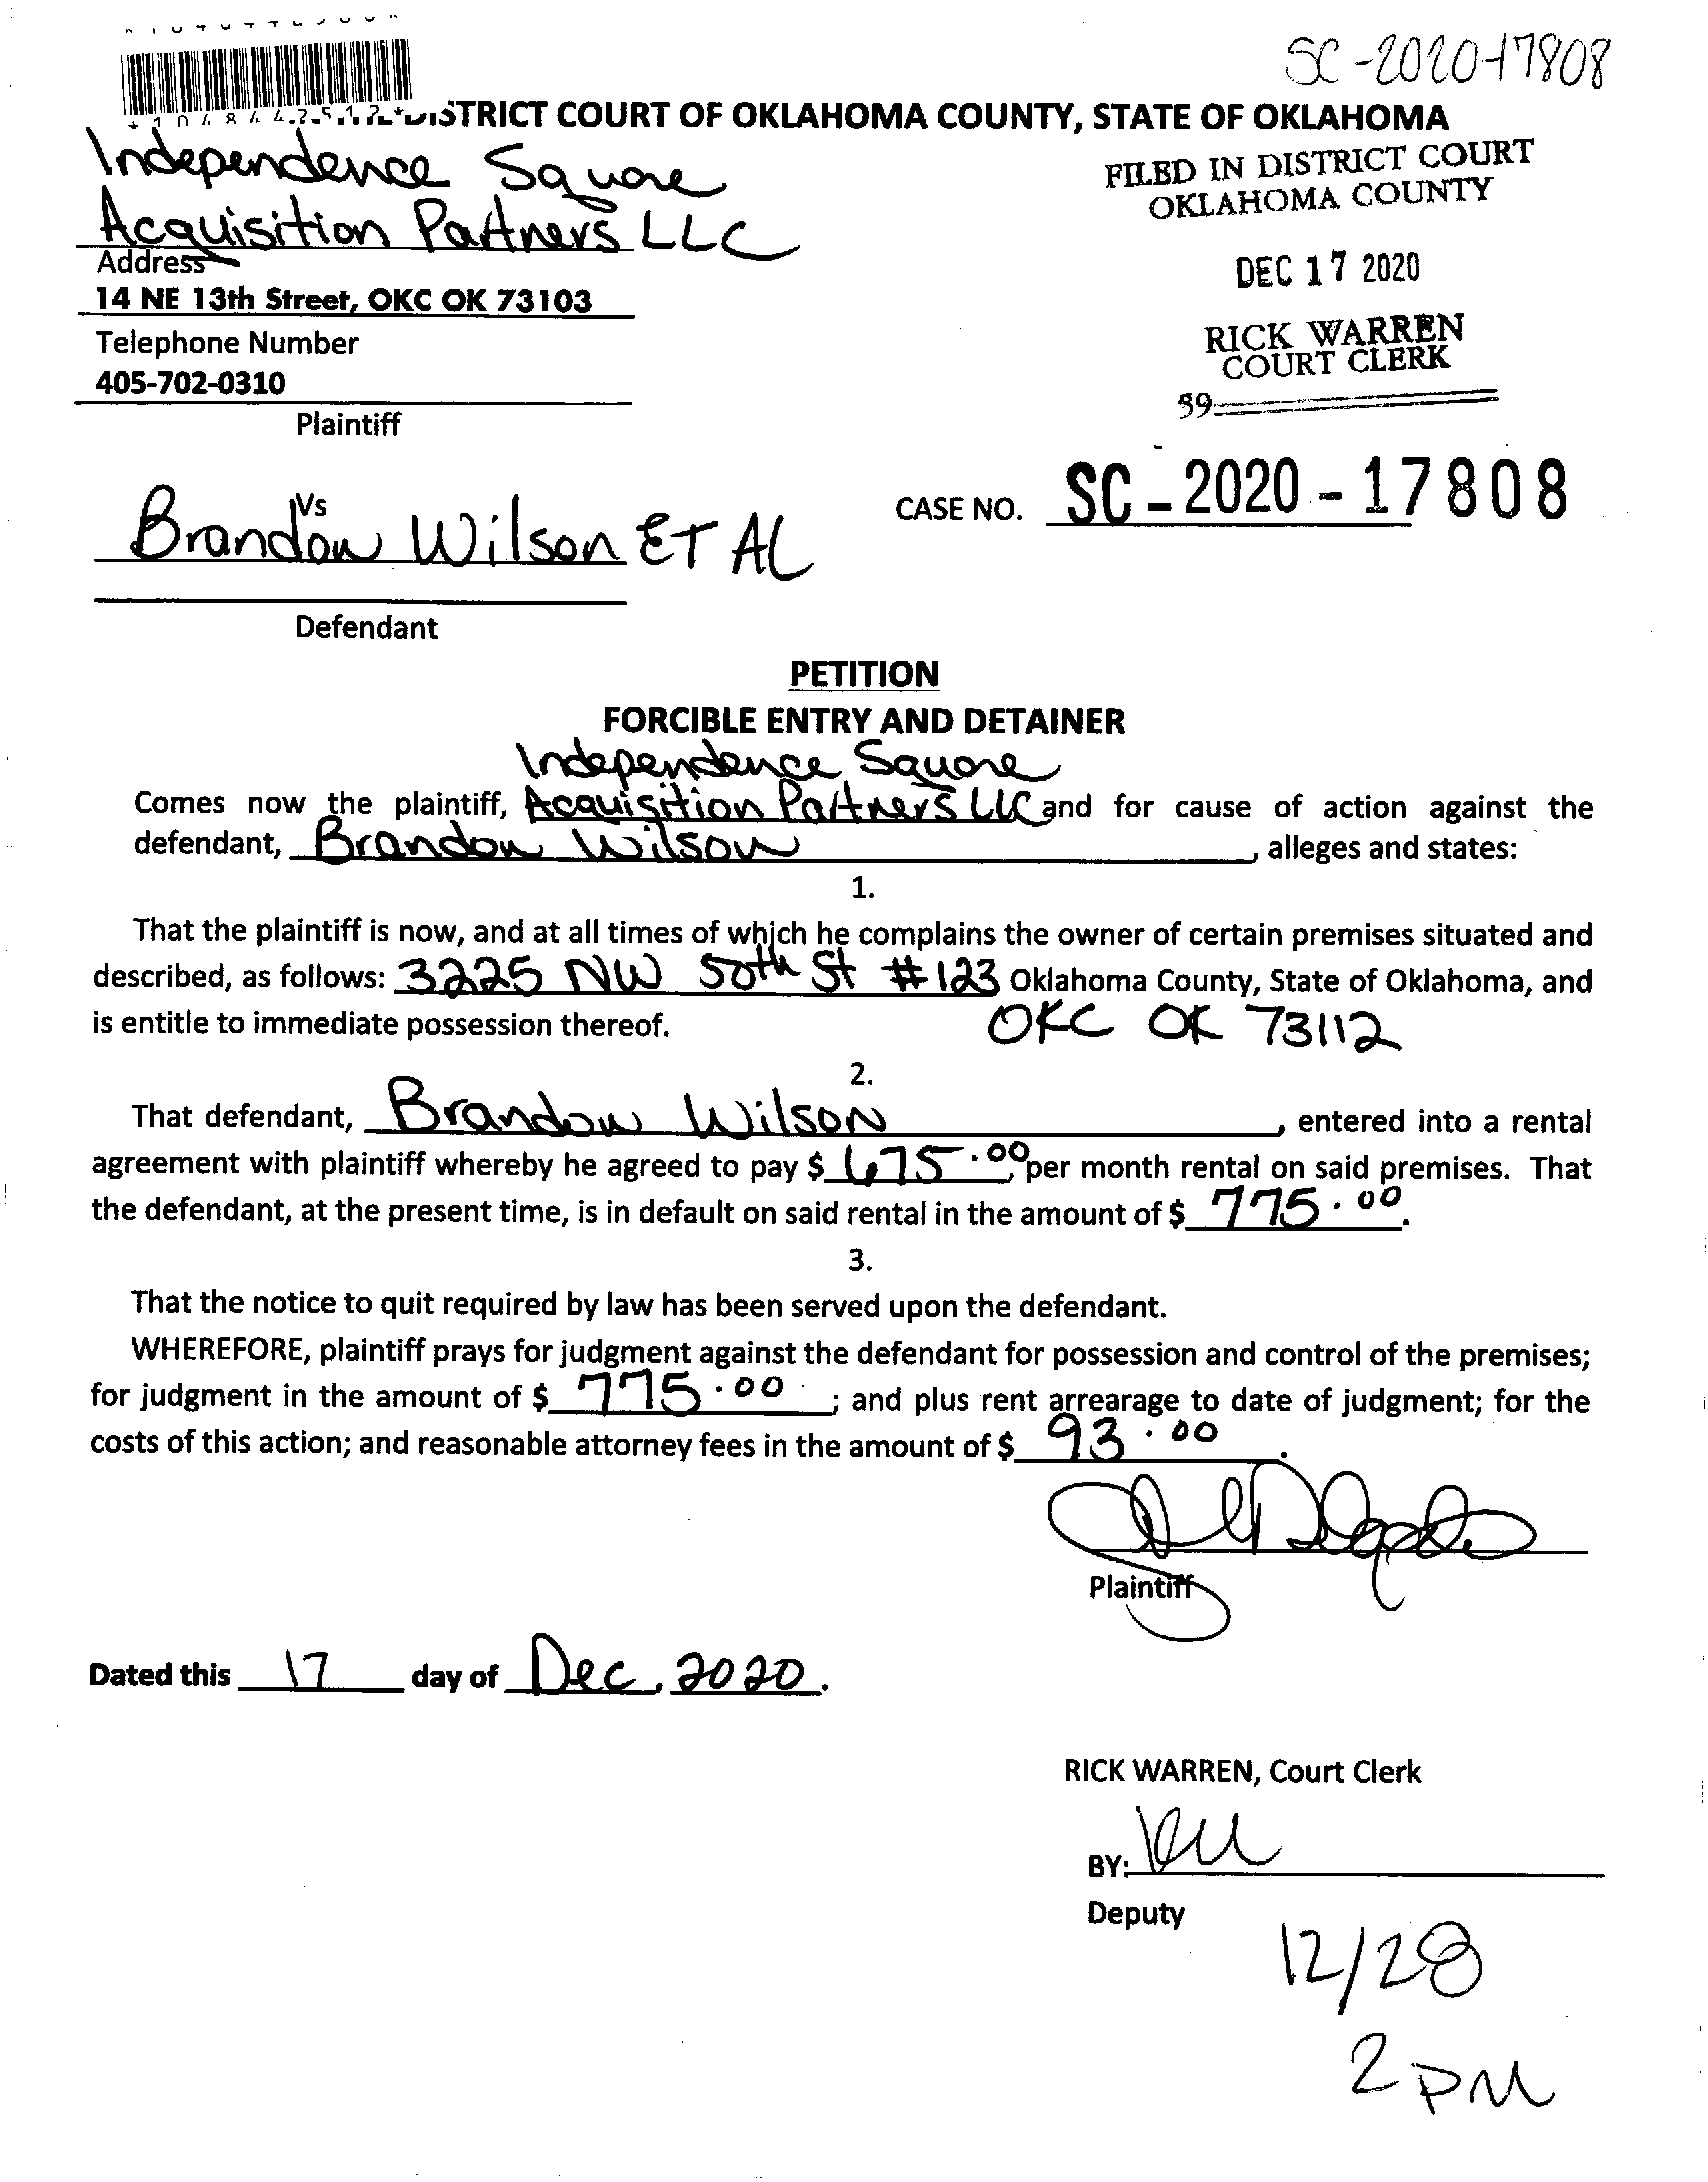 SC-2020-17808
*1048442512*
DISTRICT COURT OF OKLAHOMA COUNTY, STATE OF OKLAHOMA
Independence Square
Acquisition Partners LLC
Address
14 NE 13th Street, OKC OK 73103
Telephone Number
405-702-0310
Plaintiff
FILED IN DISTRICT COURT
OKLAHOMA COUNTY
DEC 17 2020
RICK WARREN
COURT CLERK
39
Vs
Brandon Wilson ET AL
CASE NO. SC-2020-17808
Defendant
PETITION
FORCIBLE ENTRY AND DETAINER
Independence Square
Comes now the plaintiff, Acquisition Partners LLC and for cause of action against the
defendant, Brandon Wilson, alleges and states:
1.
That the plaintiff is now, and at all times of which he complains the owner of certain premises situated and
described, as follows: 3225 NW 50th St #123 Oklahoma County, State of Oklahoma, and
is entitle to immediate possession thereof. OKC OK 73112
2.
That defendant, Brandon Wilson, entered into a rental
agreement with plaintiff whereby he agreed to pay $ 675.00, per month rental on said premises. That
the defendant, at the present time, is in default on said rental in the amount of $ 775.00.
3.
That the notice to quit required by law has been served upon the defendant.
WHEREFORE, plaintiff prays for judgment against the defendant for possession and control of the premises;
for judgment in the amount of $ 775.00; and plus rent arrearage to date of judgment; for the
costs of this action; and reasonable attorney fees in the amount of $ 93.00.
Plaintiff
Dated this 17 day of Dec, 2020.
RICK WARREN, Court Clerk
BY:
Deputy
12/28
2 PM